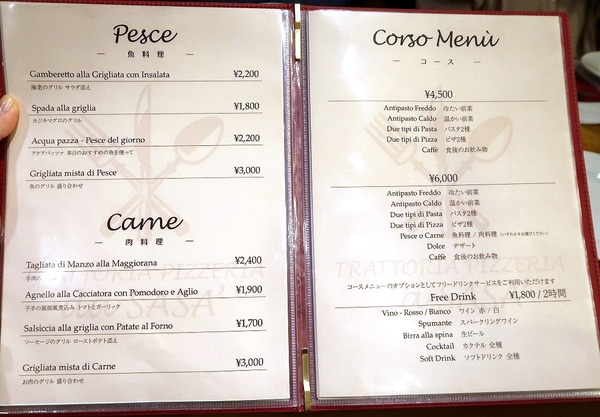 Pesce
— 魚料理 —
Gamberetto alla Grigliata con Insalata ¥2,200
海老のグリル サラダ添え
Spada alla griglia ¥1,800
カジキマグロのグリル
Acqua pazza - Pesce del giorno ¥2,200
アクアパッツァ 本日のおすすめの魚を使って
Grigliata mista di Pesce ¥3,000
魚のグリル 盛り合わせ
Carne
— 肉料理 —
Tagliata di Manzo alla Maggiorana ¥2,400
牛肉の
Agnello alla Cacciatora con Pomodoro e Aglio ¥1,900
子羊の猟師風煮込み トマトとガーリック
Salsiccia alla griglia con Patate al Forno ¥1,700
ソーセージのグリル ローストポテト添え
Grigliata mista di Carne ¥3,000
お肉のグリル 盛り合わせ
TRATTORIA PIZZERIA
SASA'
Corso Menù
— コース —
¥4,500
Antipasto Freddo 冷たい前菜
Antipasto Caldo 温かい前菜
Due tipi di Pasta パスタ2種
Due tipi di Pizza ピザ2種
Caffè 食後のお飲み物
¥6,000
Antipasto Freddo 冷たい前菜
Antipasto Caldo 温かい前菜
Due tipi di Pasta パスタ2種
Due tipi di Pizza ピザ2種
Pesce o Carne 魚料理 / 肉料理 (いずれかをお選びください)
Dolce デザート
Caffè 食後のお飲み物
TRATTORIA PIZZERIA
SASA'
コースメニューのオプションとしてフリードリンクサービスをご利用いただけます
Free Drink ¥1,800 / 2時間
Vino - Rosso / Bianco ワイン 赤 / 白
Spumante スパークリングワイン
Birra alla spina 生ビール
Cocktail カクテル 全種
Soft Drink ソフトドリンク 全種